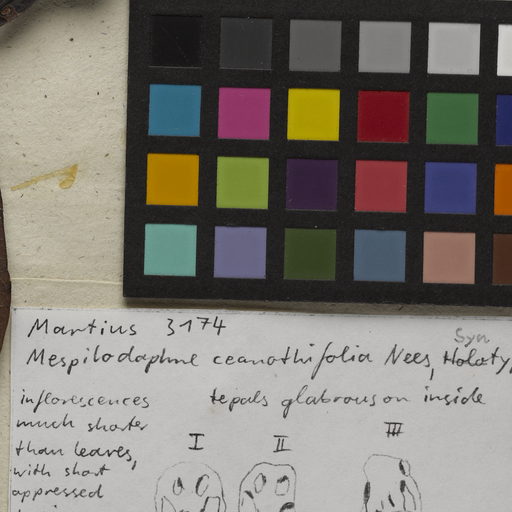 Martius 3174
Syn
Mespilodaphne ceanothifolia Nees, Holoty
inflorescences
much shorter
than leaves,
with short
appressed
tepals glabrous on inside
I II III